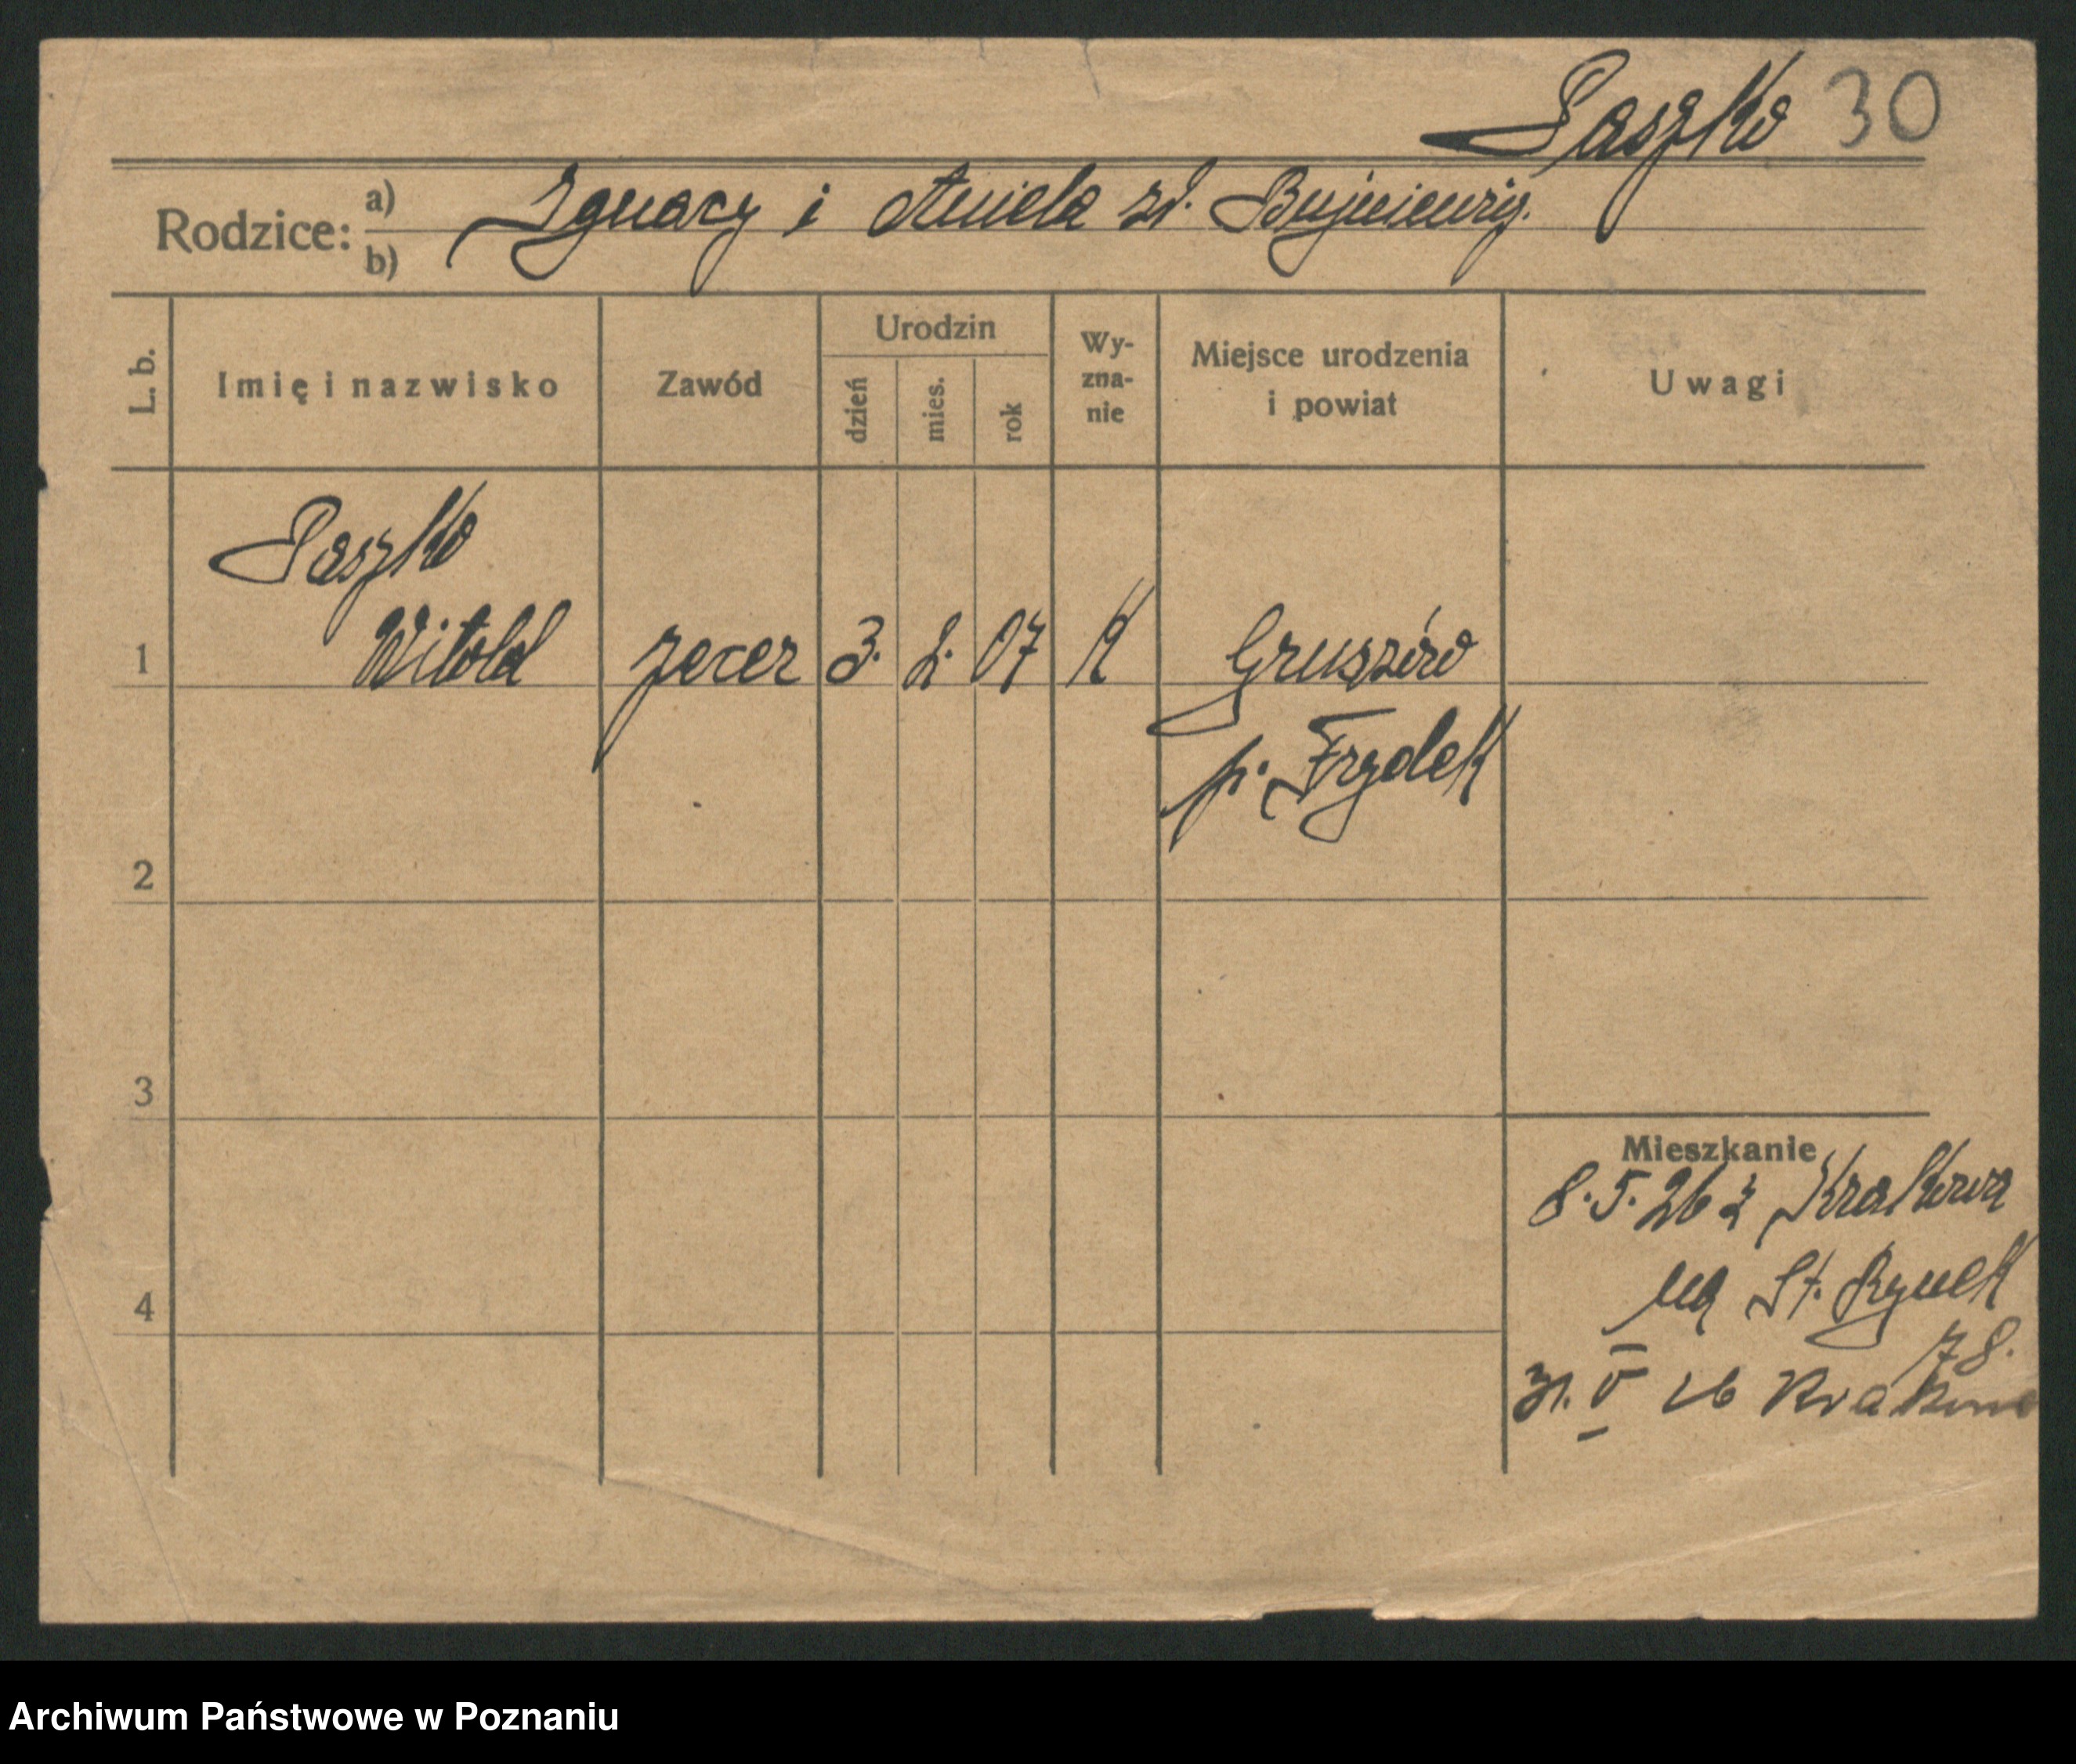 Paszko 30
Rodzice: a) Ignacy i Aniela zd.
b)
L. b. Imię i nazwisko Zawód Urodzin dzień mies. rok Wy-
zna-
nie Miejsce urodzenia
i powiat Uwagi
Paszko
1 Witold zecer 3. 2. 07 K Gruszów
p. Frydek
2
3
Mieszkanie
8. 5. 26 z Krakowa
na St. Rynek
4
78.
31. V 26 Kraków
Archiwum Państwowe w Poznaniu